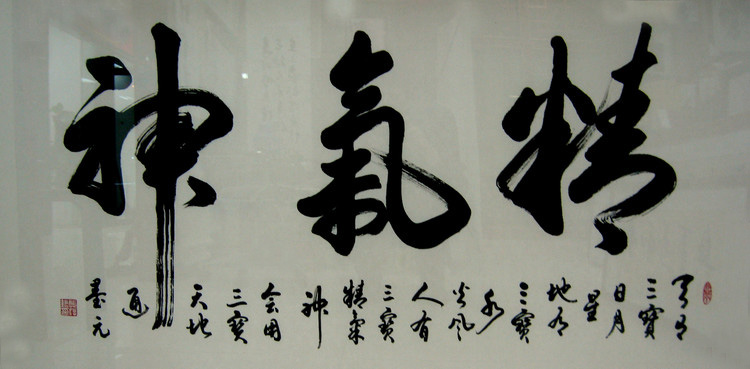 精氣神
天有
三寶
日月
星
地有
三寶
水
火风
人有
三寶
精氣
神
会用
三寶
天地
通
墨元